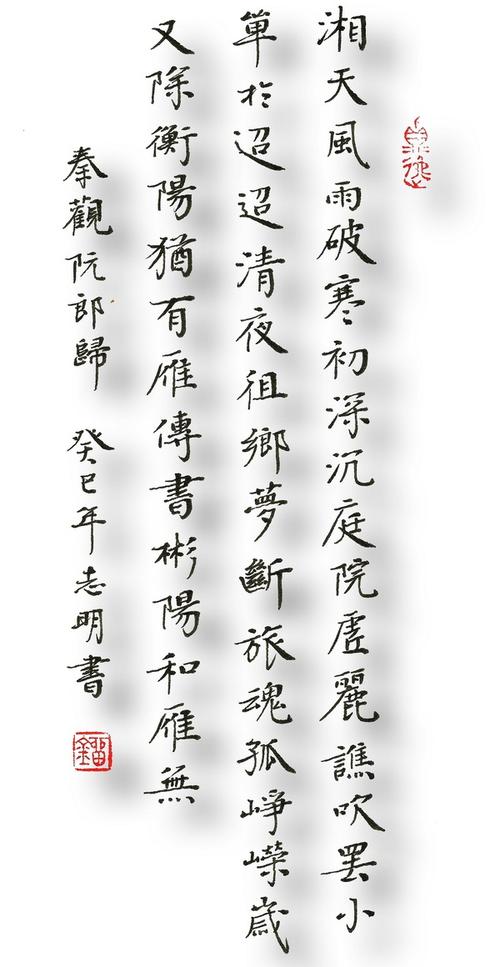 湘天風雨破寒初深沉庭院虛麗譙吹罷小
單於迢迢清夜徂鄉夢斷旅魂孤崢嶸歲
又除衡陽猶有雁傳書彬陽和雁無
秦觀阮郎歸 癸巳年志明書